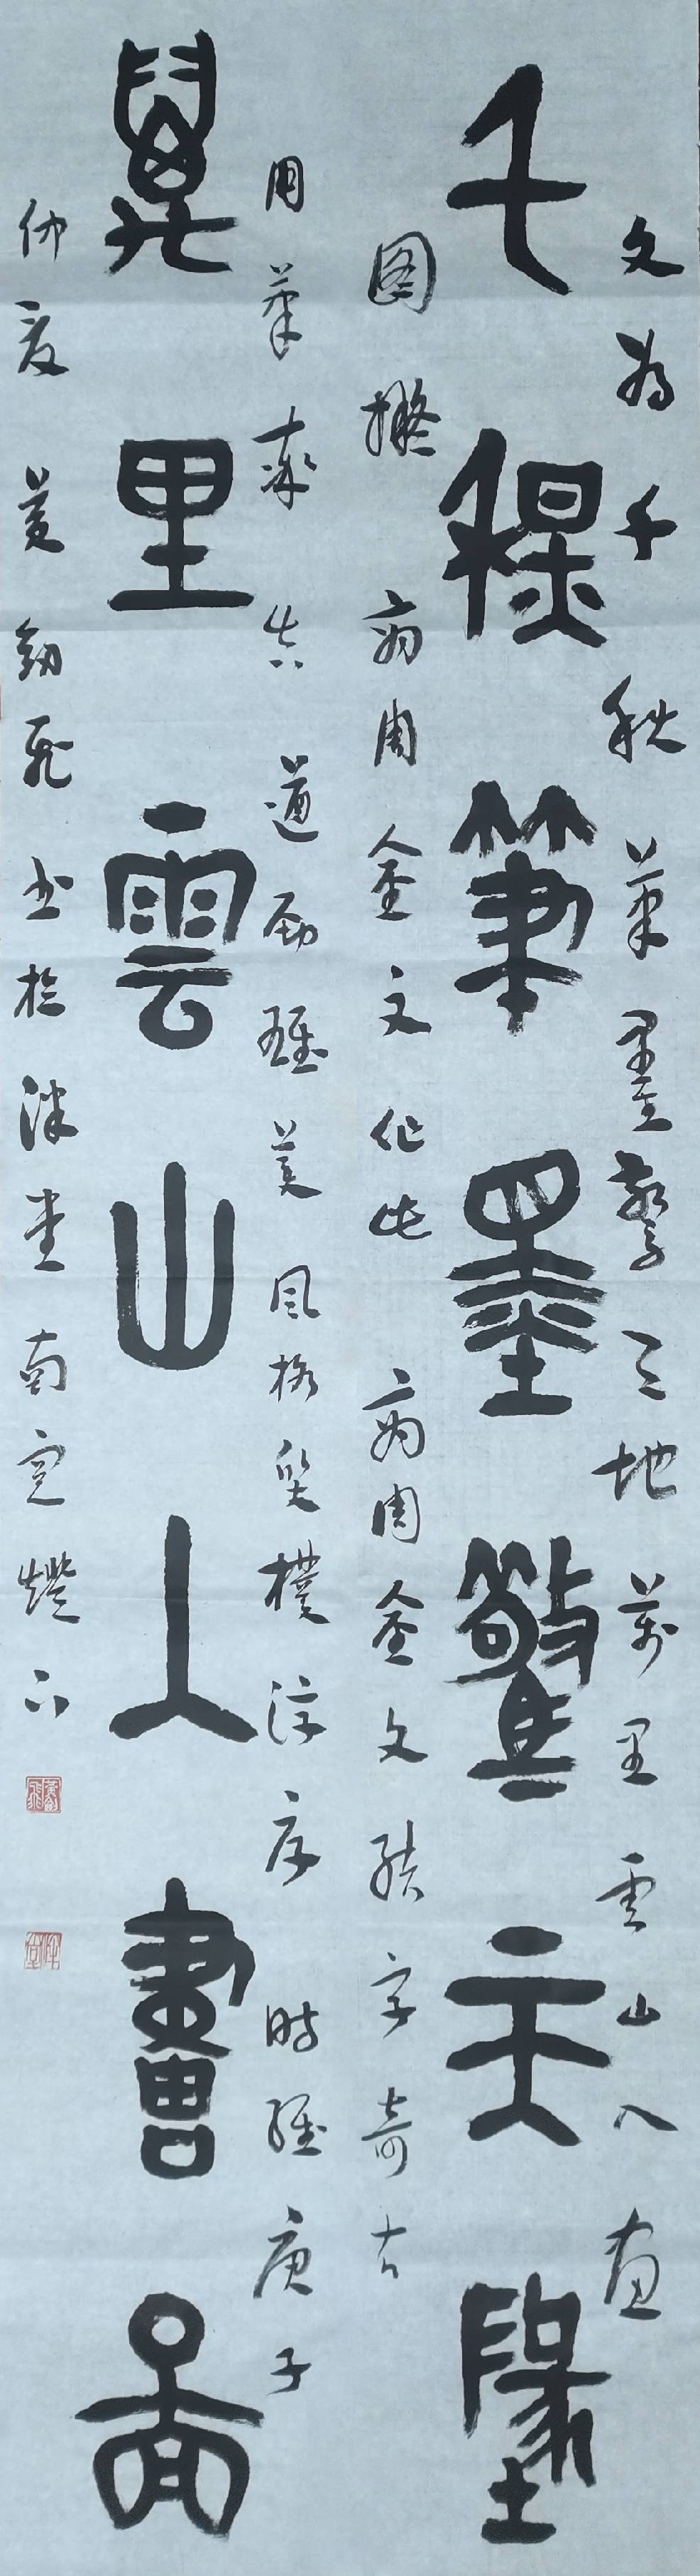 文為千秋筆墨驚天地萬里雲山入畫
千秋筆墨驚天地
圖擬商周金文作此商周金文結字奇古
用筆率真遒勁雄美風格質樸淳厚時維庚子
萬里雲山入畫圖
仲夏黃劍飛書於泮堂南窗燈下